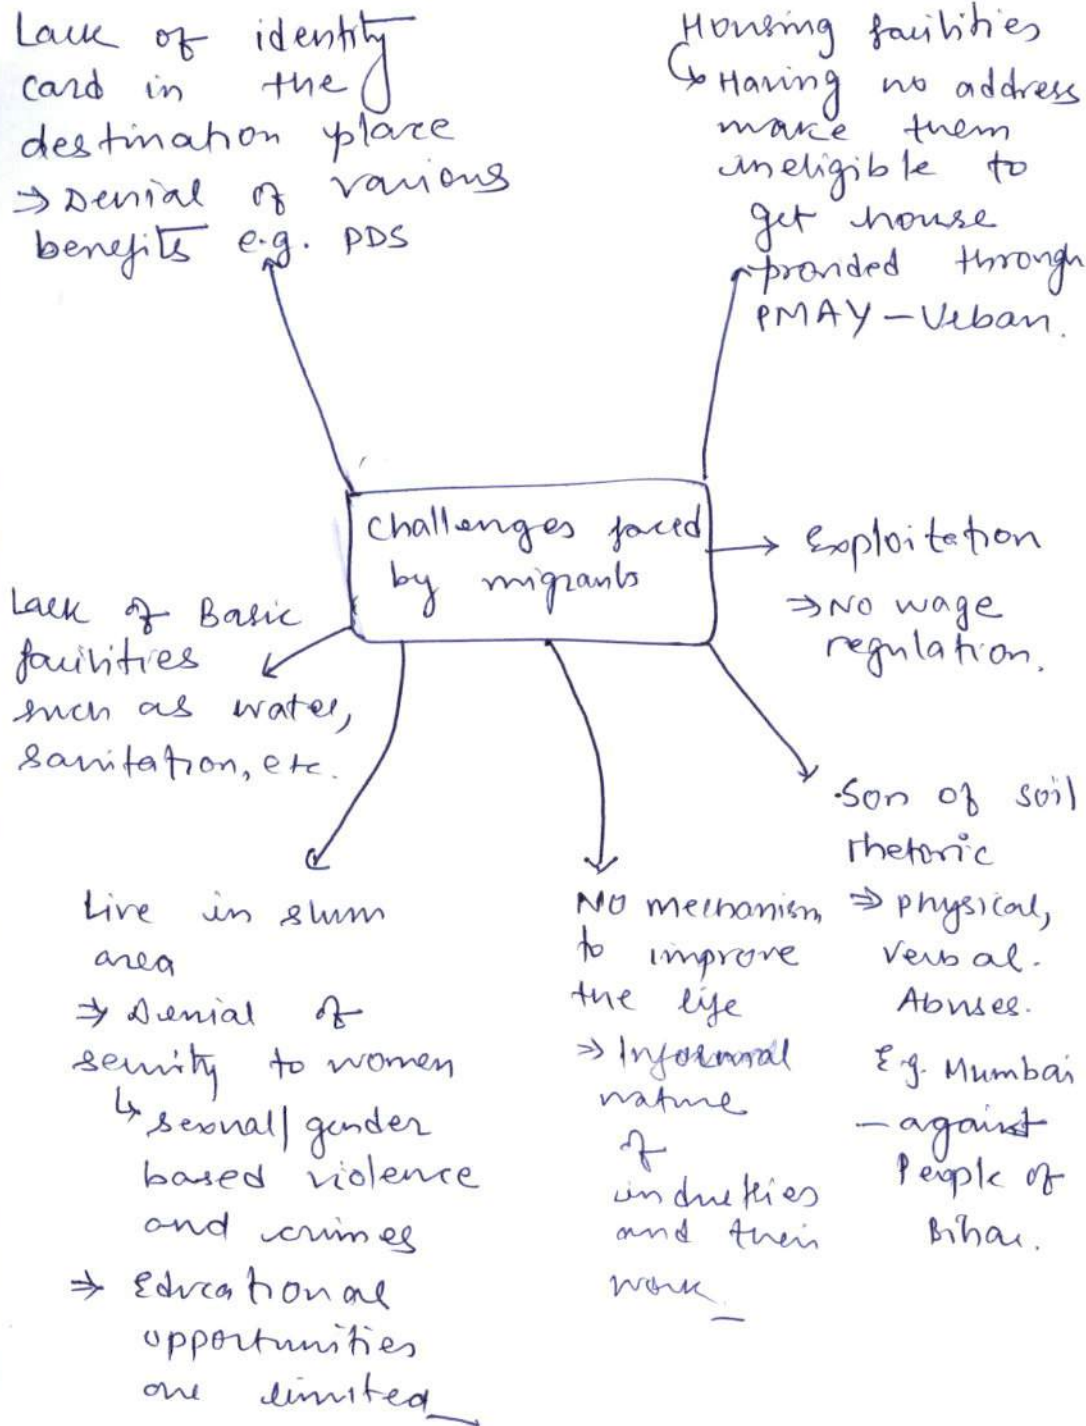 Lack of identity
card in the
destination place
⇒ Denial of various
benefits e.g. PDS
Housing facilities
↳ Having no address
make them
ineligible to
get house
provided through
PMAY – Urban.
Challenges faced
by migrants
→ Exploitation
⇒ No wage
regulation.
Lack of Basic
facilities
such as water,
sanitation, etc.
Live in slum
area
⇒ Denial of
security to women
↳ sexual/gender
based violence
and crimes
⇒ Educational
opportunities
are limited
No mechanism
to improve
the life
⇒ Informal
nature
of
industries
and their
work
Son of soil
rhetoric
⇒ physical,
verbal.
Abuses.
E.g. Mumbai
– against
People of
Bihar.